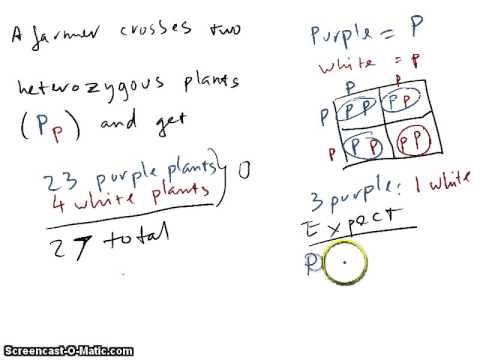 A farmer crosses two
heterozygous plants
(Pp) and get
23 purple plants
4 white plants
0
27 total
Purple = P
white = p
P p
P PP Pp
p Pp pp
3 purple: 1 white
Expect
P
Screencast-O-Matic.com